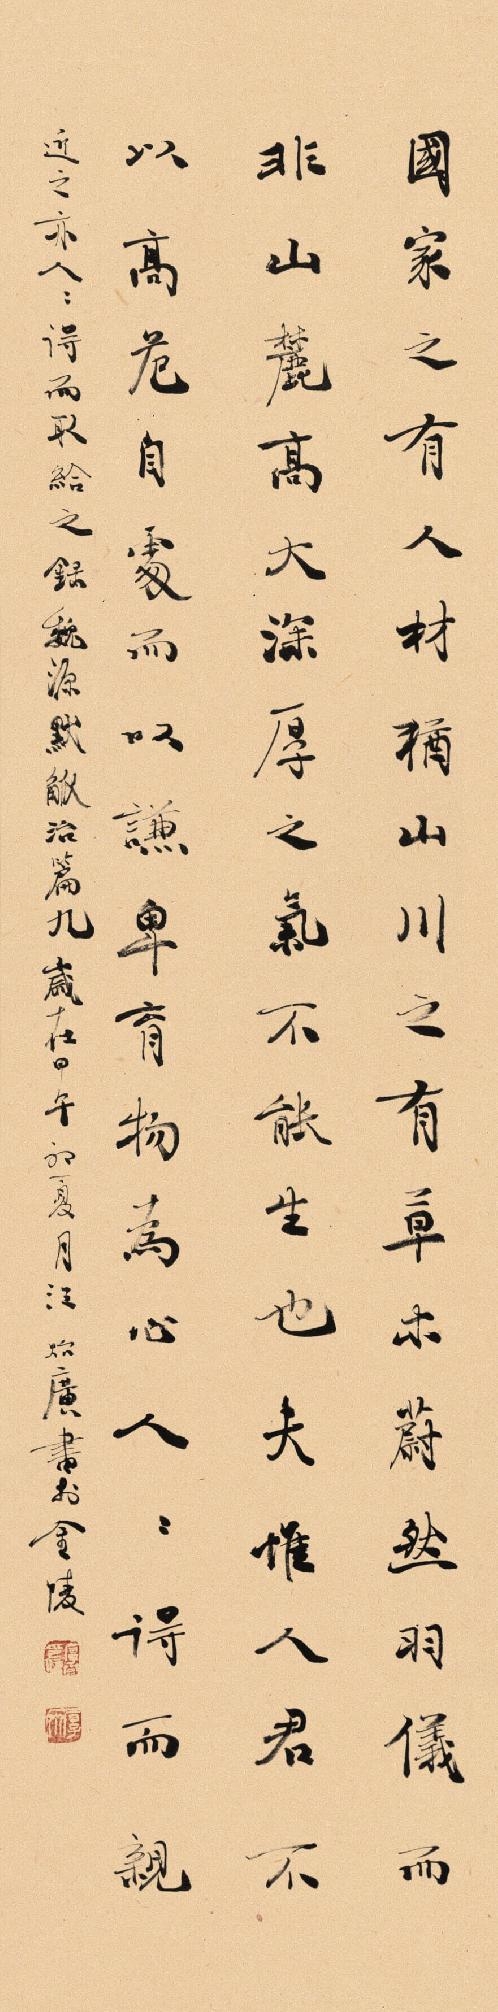 國家之有人材猶山川之有草木蔚然羽儀而
非山麓高大深厚之氣不能生也夫惟人君不
以高危自處而以謙卑育物為心人〻得而親
近之亦人〻得而取給之錄魏源默觚治篇九歲在甲午初夏月汪 廣書於金陵